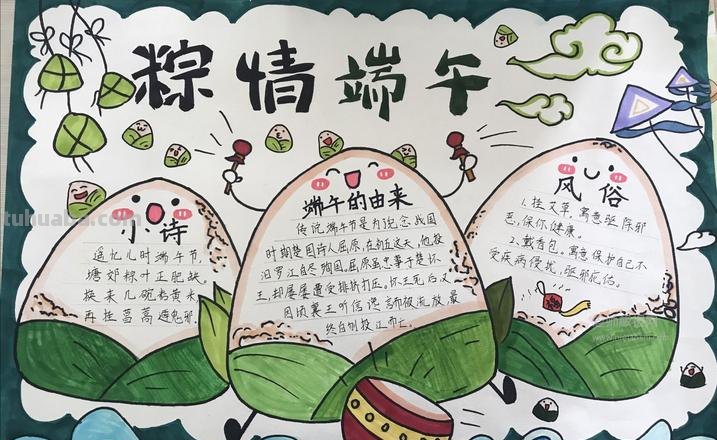 粽情端午
小诗
遥忆儿时端午节,
塘郊粽叶正肥缺。
换来几碗粘黄米,
再挂菖蒿遇鬼邪。
端午的由来
传说端午节是为纪念战国
时期楚国诗人屈原,在初五这天,他投
汨罗江自尽殉国。屈原虽忠事于楚怀
王,却屡屡遭受排挤打压。怀王死后又
因顷襄王听信谗言而被流放,最
终自刎投江而亡。
风俗
1.挂艾草,寓意驱除邪
恶,保你健康。
2.戴香包,寓意保护自己不
受疾病侵扰,驱邪庇佑。
tuhuaba.com